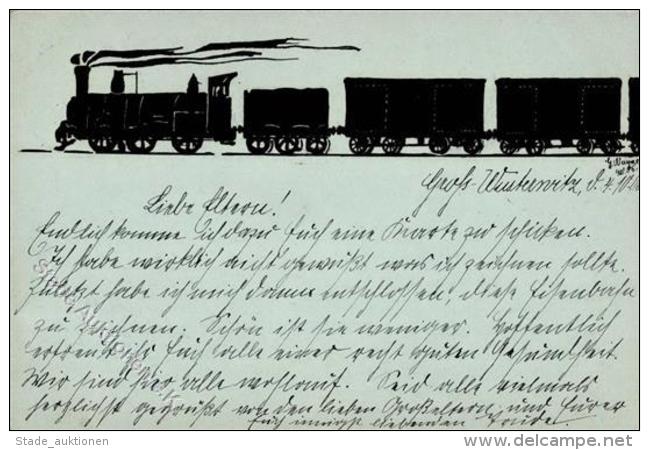 Gross-Winterwitz, d. 4.10.
Liebe Eltern!
Endlich komme ich dazu Euch eine Karte zu schicken.
Ich habe wirklich nicht gewußt was ich zeichnen sollte.
Zuletzt habe ich mich dann entschlossen, diese Eisenbahn
zu zeichnen. Schön ist sie weniger. Hoffentlich
erfreut ihr Euch alle einer recht guten Gesundheit.
Wir sind hier alle wohlauf. Seid alle vielmals
herzlichst gegrüßt von den lieben Großeltern und Eurer
Euch innigst liebenden
Stade_auktionen
www.delcampe.net